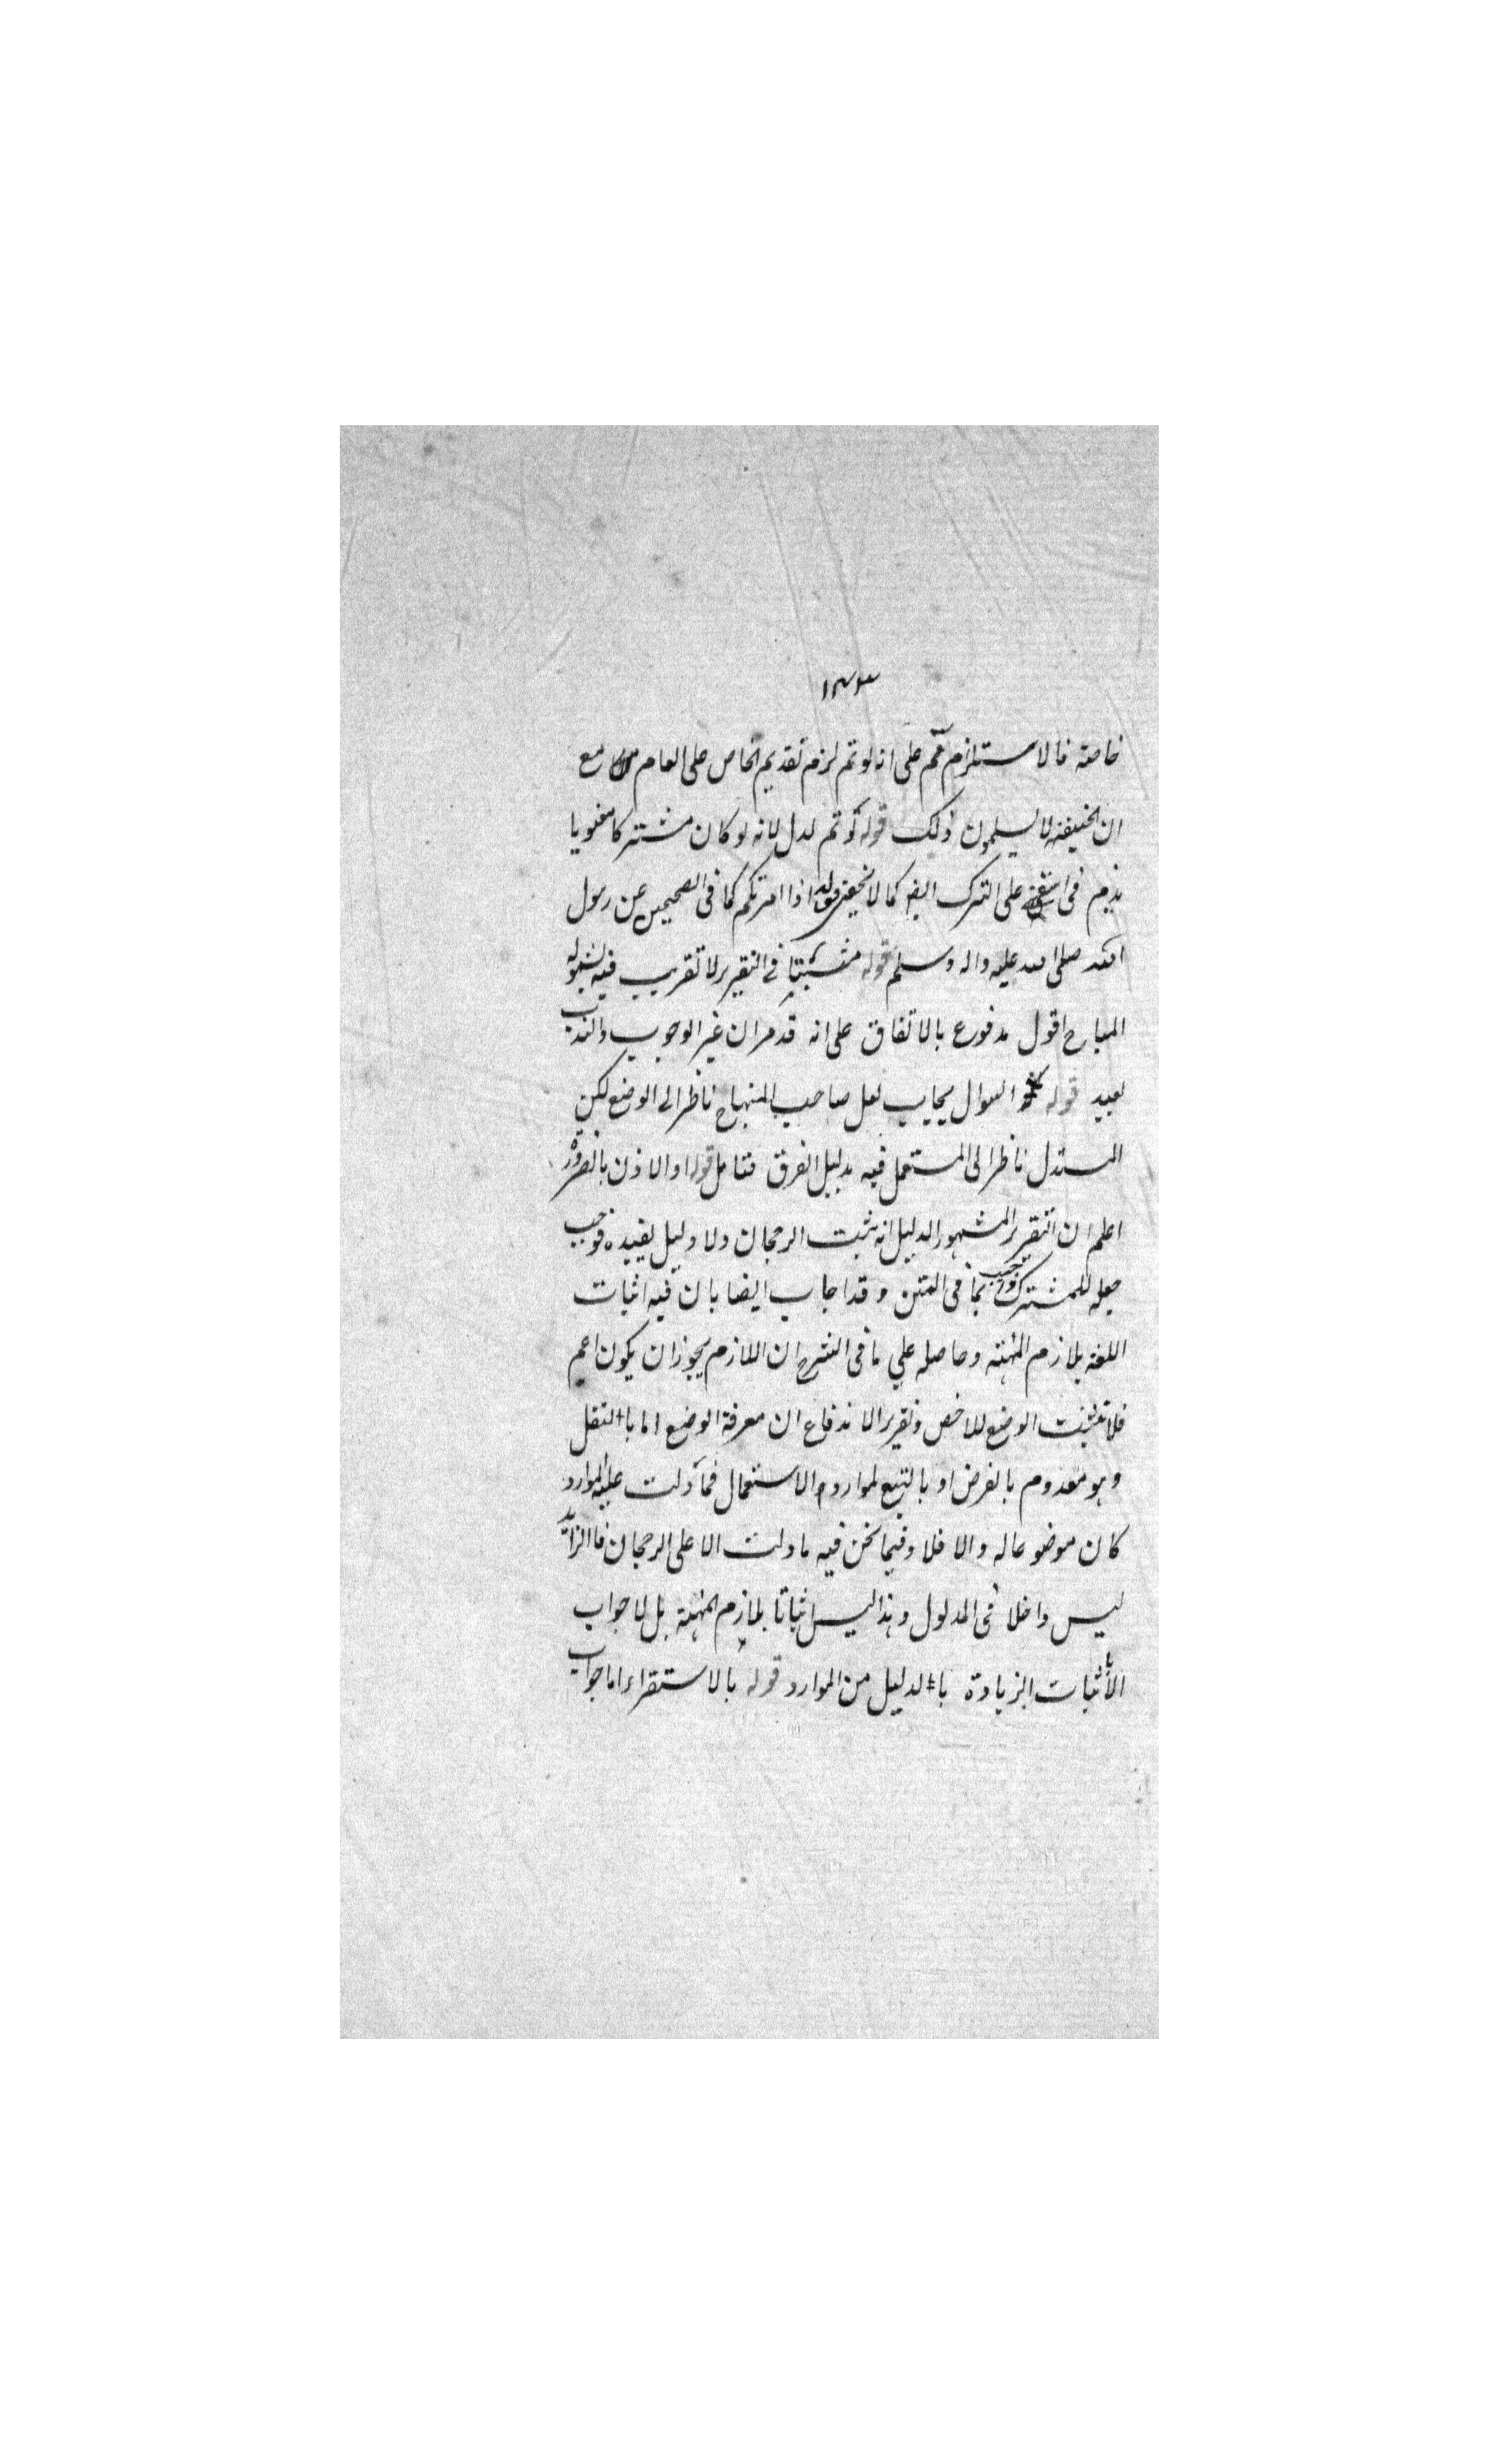 ١٧٣
خاصته فالاستلزام اعم على انه لو تم لزم تقديم الخاص على العام مع
ان الحنيفة لا يسلمون ذلك قوله لو تم لدل لانه لو كان مشتركا معنويا
يذم فى على الترك ايضا كما لا يخفى قوله اذا امرتكم كما فى الصحيحين عن رسول
الله صلى الله عليه واله وسلم قوله فى التقرير لا تقريب فيه لشموله
المباح اقول مدفوع بالاتفاق على انه قد مر ان غير الوجوب والندب
بعيد قوله السوال يجاب لعل صاحب المنهاج ناظر الى الوضع لكن
المستدل ناظر الى المستعمل فيه بدليل الفرق فتامل قوله او الاذن بالضرورة
اعلم ان التقرير المشهور الدليل انه يثبت الرجحان ولا دليل يقيده فوجب
جعله للمشترك بما فى المتن وقد اجاب ايضا بان فيه اثبات
اللغة بلازم المهية وحاصله علي ما فى الشرح ان اللازم يجوز ان يكون اعم
فلا تثبت الوضع للاخص وتقرير الاندفاع ان معرفة الوضع اما بالنقل
وهو معدوم بالفرض او بالتتبع لموارد الاستعمال فما دلت عليه الموارد
كان موضوعا له والا فلا وفيما نحن فيه ما دلت الا على الرجحان فالزائد
ليس داخلا فى المدلول وهذا ليس اثباتا بلازم المهية بل لا جواب
الا باثبات الزيادة بالدليل من الموارد قوله بالاستقراء اما جواب